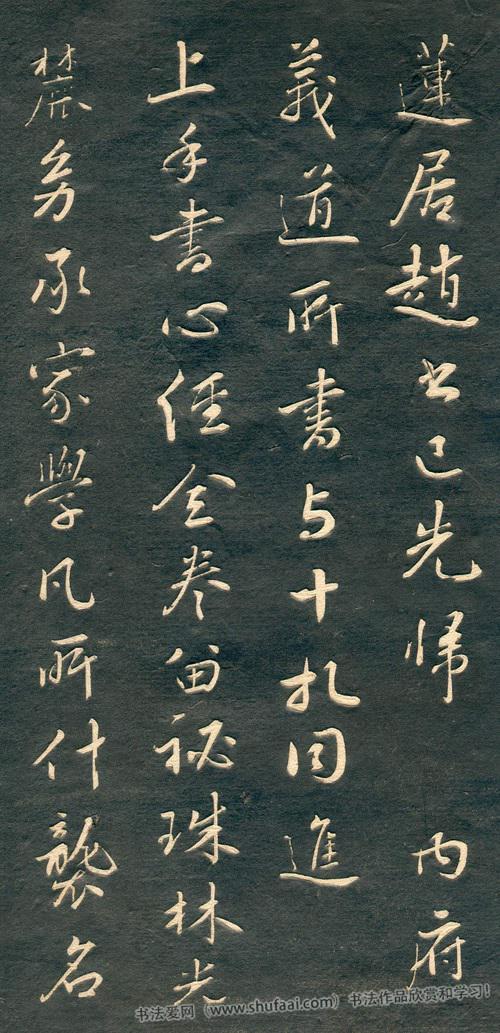 蓮居趙書已先歸 内府
義道所書与十札同進
上手書心經全卷留祕珠林光
麓承家學凡所什襲名
书法爱网（www.shufaai.com）书法作品欣赏和学习！